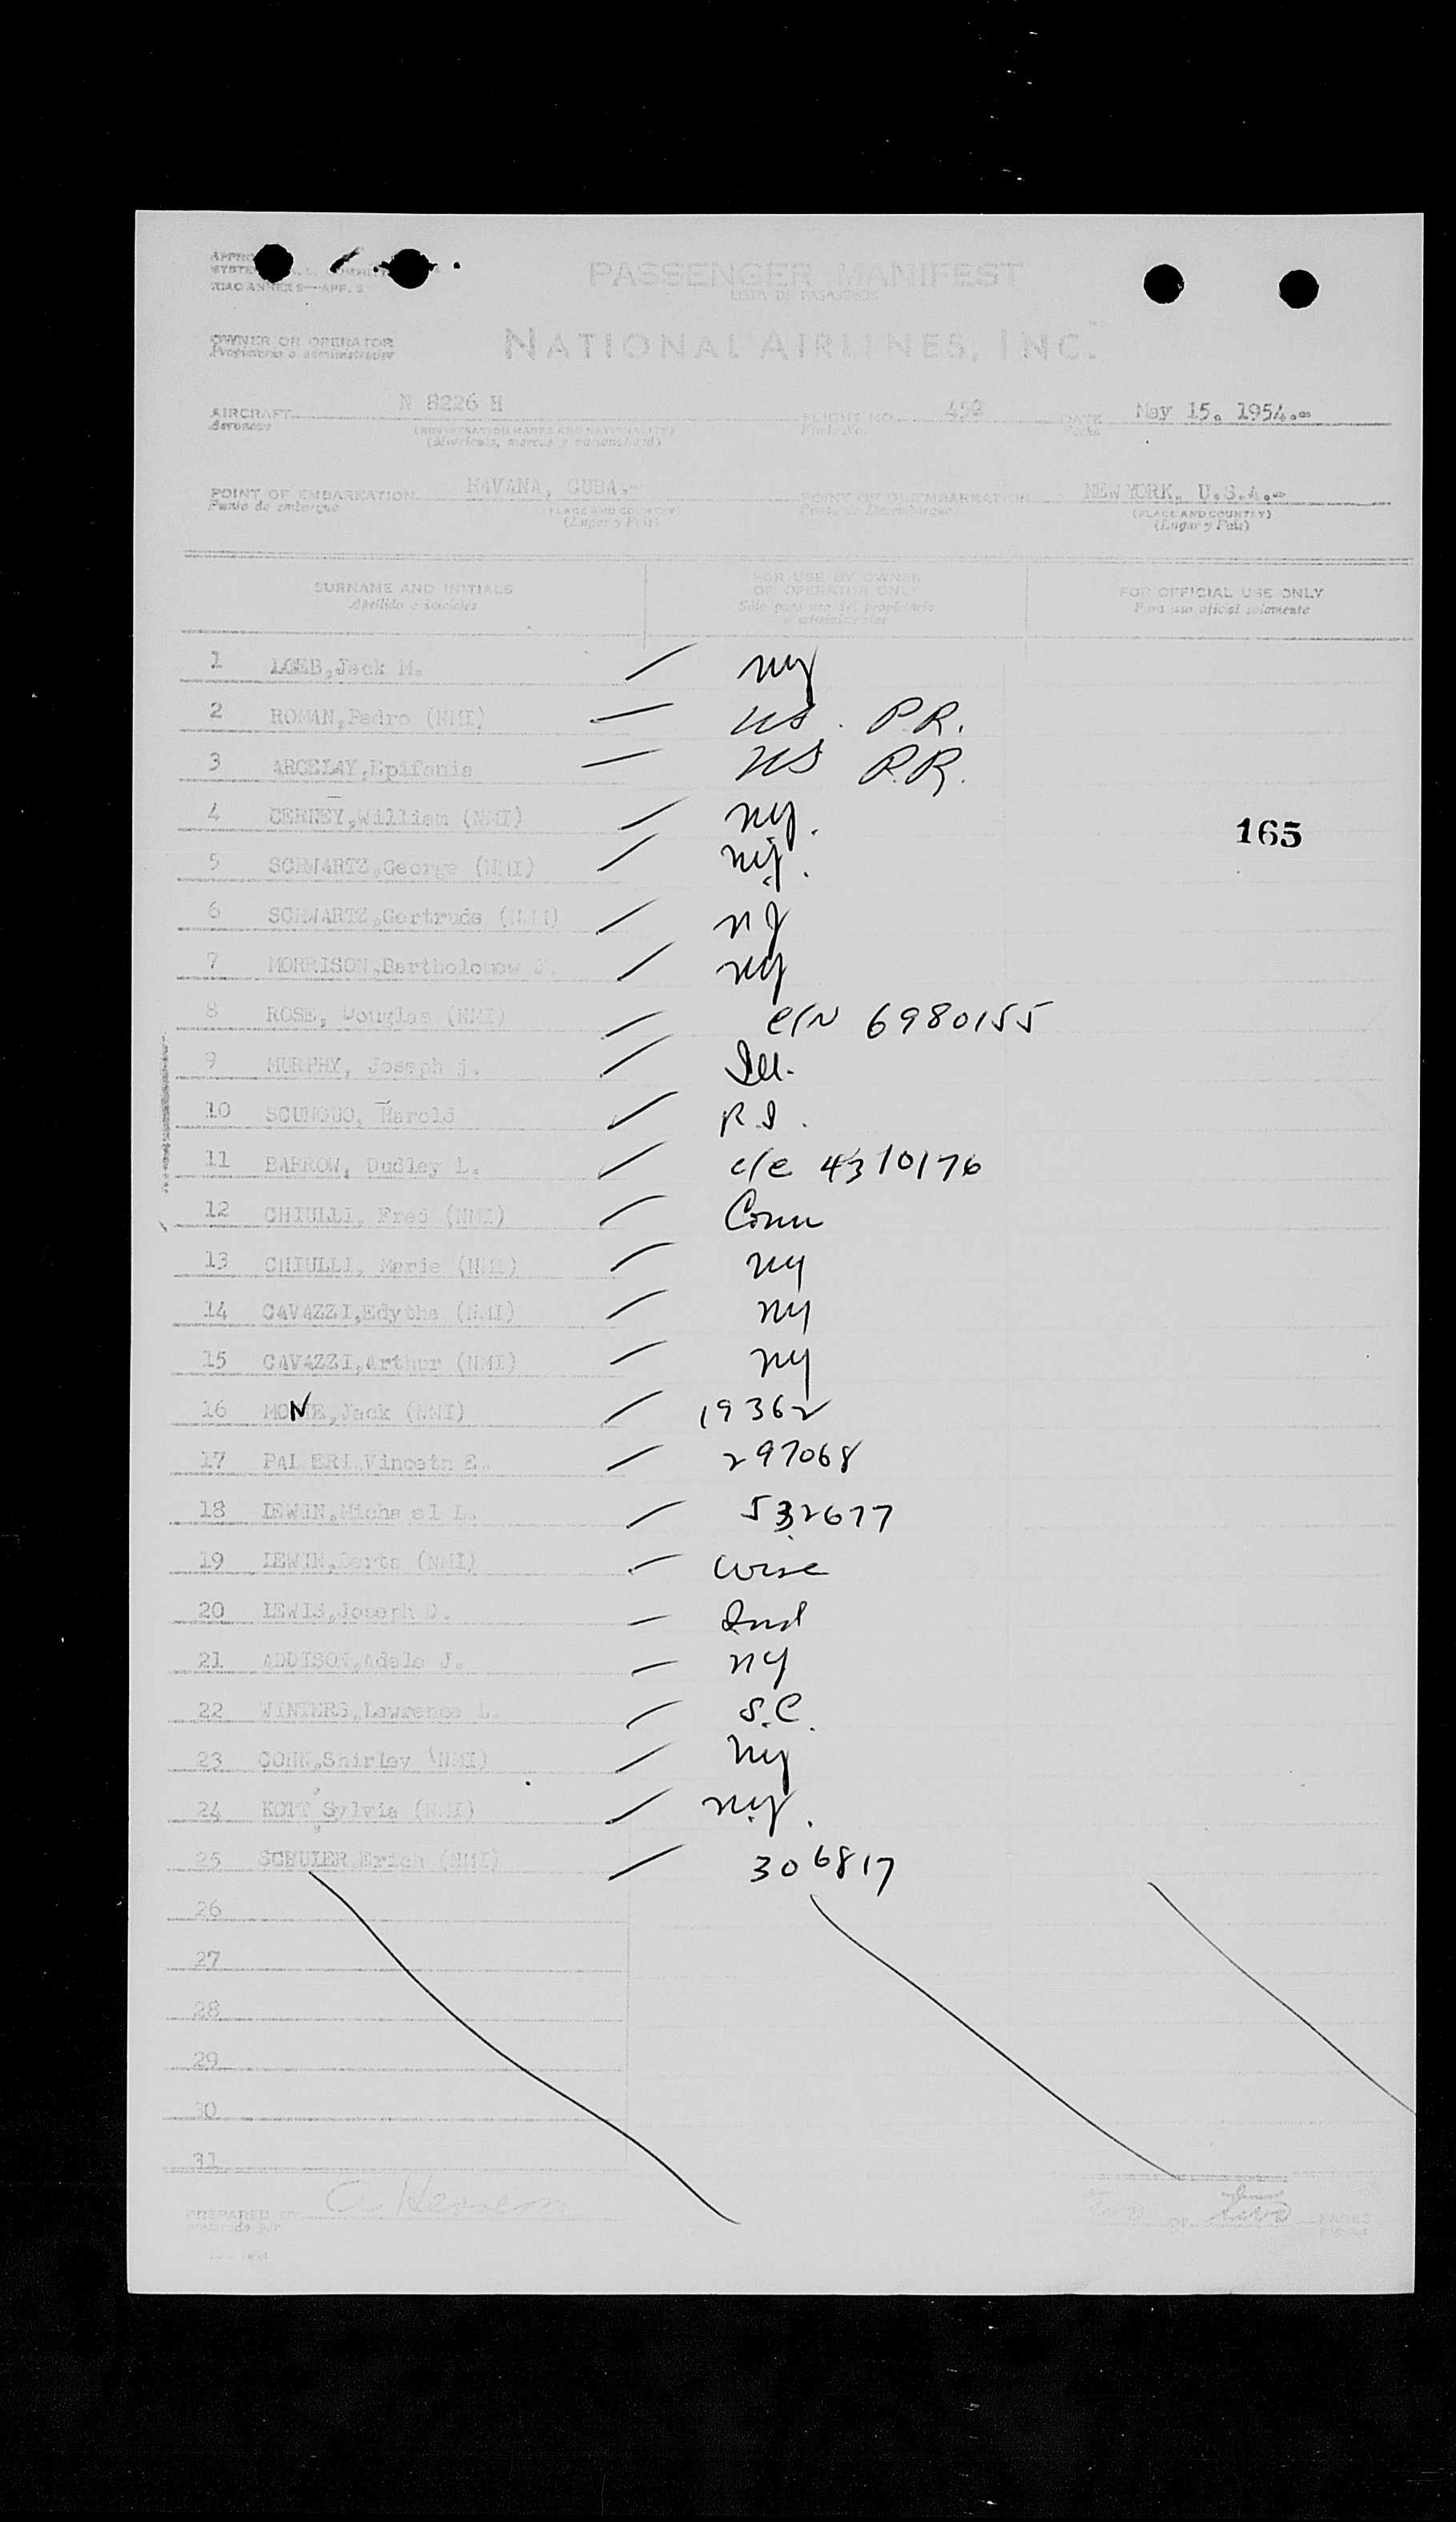 PASSENGER MANIFEST
LISTA DE PASAJEROS
ICAO ANNEX 9—APP. 2
OWNER OR OPERATOR
Propietario o administrador
NATIONAL AIRLINES, INC.
AIRCRAFT N 8226 H FLIGHT NO. 452 DATE May 15, 1954.-
Aeronave (REGISTRATION MARKS AND NATIONALITY) Vuelo No. Fecha
(Matricula, marcas y nacionalidad)
POINT OF EMBARKATION HAVANA, CUBA.- POINT OF DISEMBARKATION NEW YORK, U.S.A.-
Punto de embarque (PLACE AND COUNTRY) Punto de Desembarque (PLACE AND COUNTRY)
(Lugar y País) (Lugar y País)
SURNAME AND INITIALS FOR USE BY OWNER OR OPERATOR ONLY FOR OFFICIAL USE ONLY
Apellido e iniciales Sólo para uso del propietario o administrador Para uso oficial solamente
1 LOEB,Jack M. / ny
2 ROMAN,Pedro (NMI) / US. P.R.
3 ARCELAY,Epifania / US P.R.
4 CERNEY,William (NMI) / ny.
165
5 SCHWARTZ,George (NMI) / nj.
6 SCHWARTZ,Gertrude (NMI) / nj
7 MORRISON,Bartholomew J. / ny
8 ROSE, Douglas (NMI) / C/N 6980155
9 MURPHY, Joseph / Ill.
10 SCUNGUO, Harold / R.I.
11 BARROW, Dudley L. / c/e 4310176
12 CHIULLI, Fred (NMI) / Conn
13 CHIULLI, Marie (NMI) / ny
14 CAVAZZI,Edythe (NMI) / ny
15 CAVAZZI,Arthur (NMI) / ny
16 MONE,Jack (NMI) / 19362
17 PALMERI,Vincetn E. / 297068
18 LEWIN,Micha el L. / 532677
19 LEWIN,Berta (NMI) / Wisc
20 LEWIS,Joseph D. / Ind
21 ADDISON,Adele J. / ny
22 WINTERS,Lawrence L. / S.C.
23 COHN,Shirley (NMI) / ny
24 KOTT,Sylvia (NMI) / ny.
25 SCHULER,Erich (NMI) / 306817
26
27
28
29
30
31
PREPARED BY
Preparado por
OF PAGES